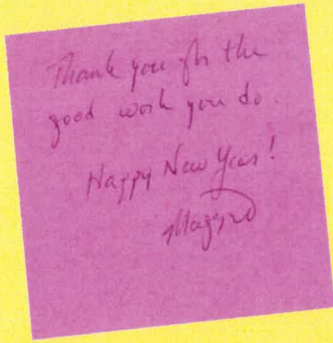 Thank you for the
good work you do.
Happy New Year!